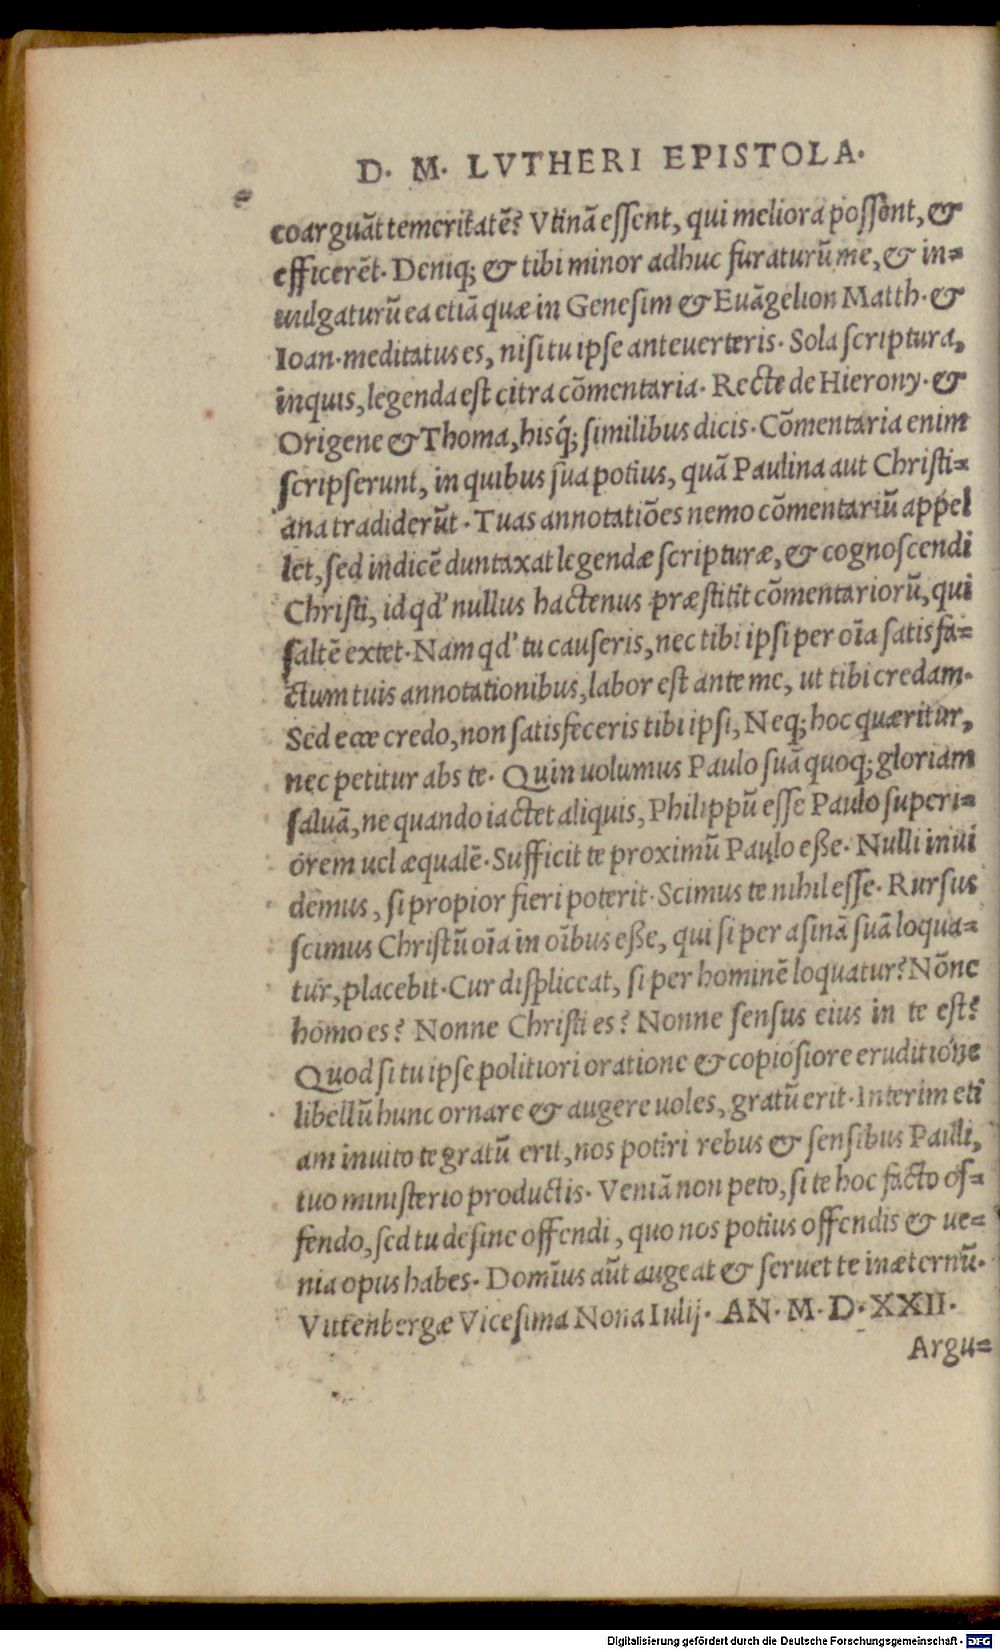 D. M. LVTHERI EPISTOLA.
coarguãt temeritatẽ? Vtinã eſſent, qui meliora poſſent, &
efficerẽt. Deniq; & tibi minor adhuc furaturũ me, & in=
uulgaturũ ea etiã quæ in Geneſim & Euãgelion Matth. &
Ioan. meditatus es, niſi tu ipſe anteuerteris. Sola ſcriptura,
inquis, legenda eſt citra cõmentaria. Recte de Hierony. &
Origene & Thoma, hisq́; ſimilibus dicis. Cõmentaria enim
ſcripſerunt, in quibus ſua potius, quã Paulina aut Chriſti=
ana tradiderũt. Tuas annotatiões nemo cõmentariũ appel
let, ſed indicẽ duntaxat legendæ ſcripturæ, & cognoſcendi
Chriſti, id qd' nullus hactenus præſtitit cõmentariorũ, qui
ſaltẽ extet. Nam qd' tu cauſeris, nec tibi ipſi per oĩa ſatisfa=
ctum tuis annotationibus, labor eſt ante me, ut tibi credam.
Sed ecce credo, non ſatisfeceris tibi ipſi, Neq; hoc quæritur,
nec petitur abs te. Quin uolumus Paulo ſuã quoq; gloriam
ſaluã, ne quando iactet aliquis, Philippũ eſſe Paulo ſuperi=
orem uel æqualẽ. Sufficit te proximũ Paulo eße. Nulli inui
demus, ſi propior fieri poterit. Scimus te nihil eſſe. Rurſus
ſcimus Chriſtũ oĩa in oĩbus eße, qui ſi per aſinã ſuã loqua=
tur, placebit. Cur diſpliceat, ſi per hominẽ loquatur? Nõne
homo es? Nonne Chriſti es? Nonne ſenſus eius in te eſt?
Quod ſi tu ipſe politiori oratione & copioſiore eruditione
libellũ hunc ornare & augere uoles, gratũ erit. Interim eti
am inuito te gratũ erit, nos potiri rebus & ſenſibus Pauli,
tuo miniſterio productis. Veniã non peto, ſi te hoc facto of=
fendo, ſed tu deſine offendi, quo nos potius offendis & ue=
nia opus habes. Domĩus aũt augeat & ſeruet te in æternũ.
Vuittenbergæ Viceſima Nona Iulij. AN. M. D. XXII.
Argu=
Digitalisierung gefördert durch die Deutsche Forschungsgemeinschaft - DFG